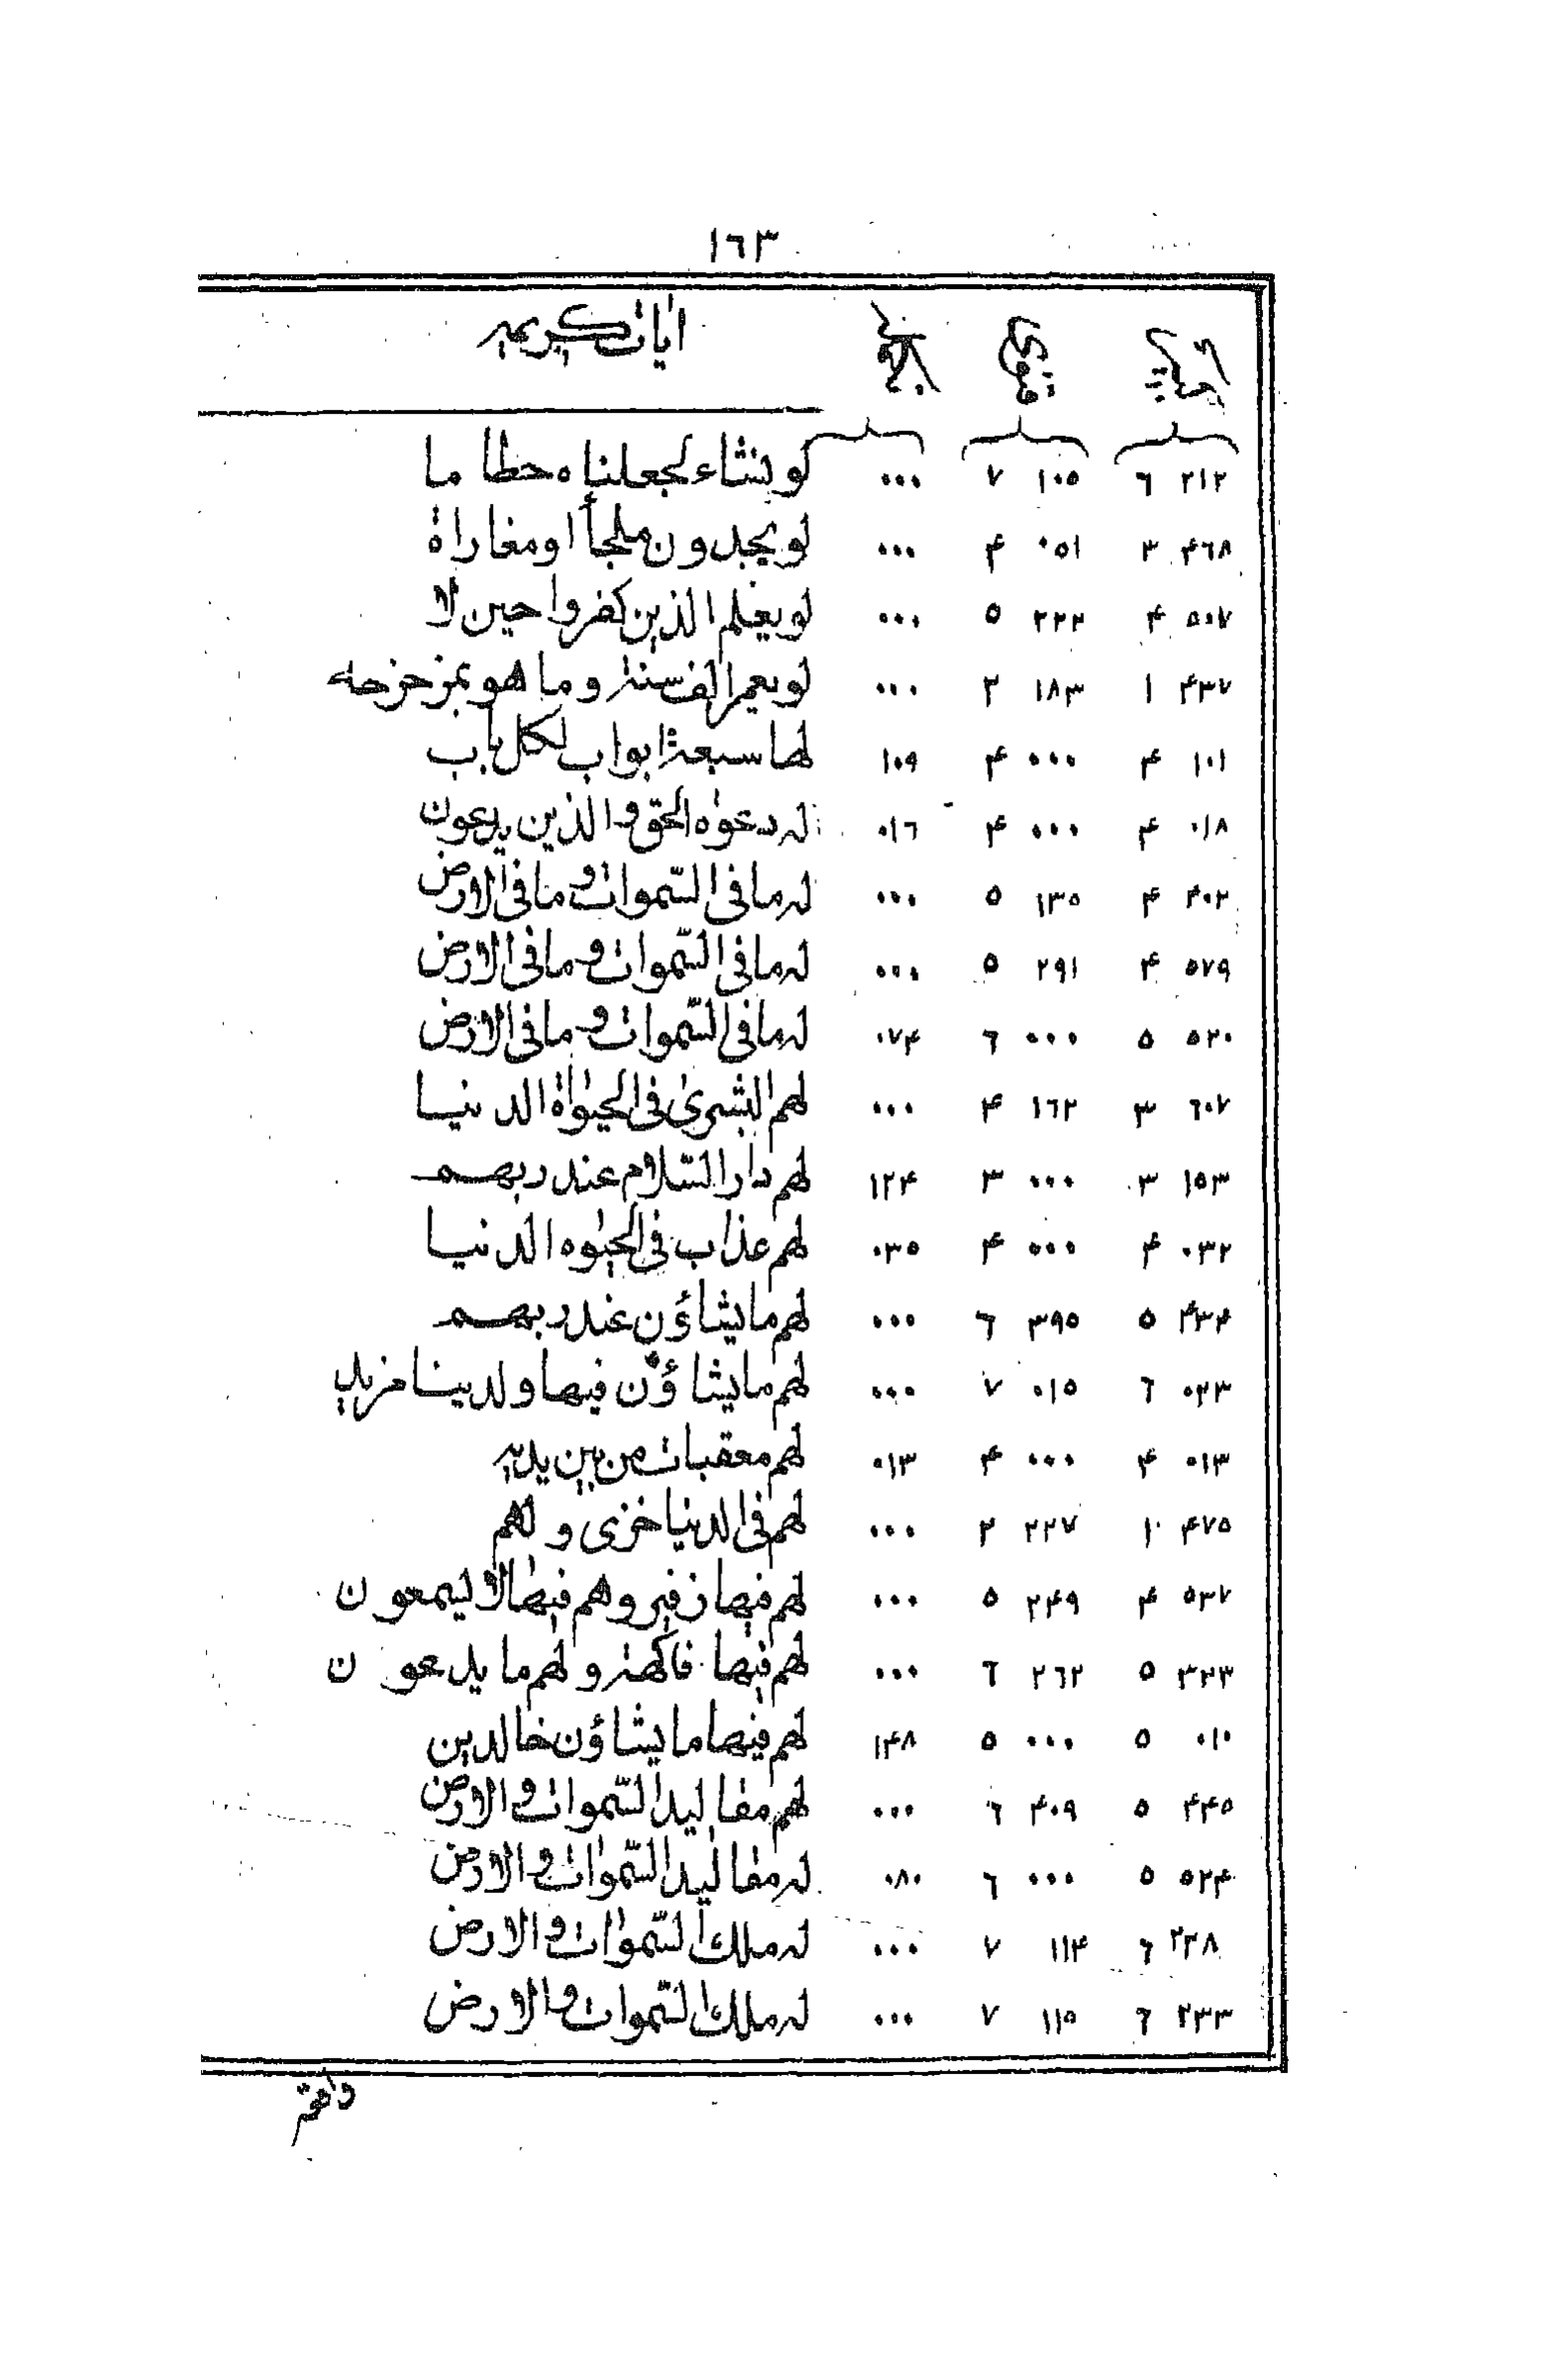 ١٦٣
ايات كريمه
٢١٢ ٦ ١٠٥ ٧ ٠٠٠ لو نشاء لجعلناه حطا ما
۴٦٨ ٣ ٠٥١ ۴ ٠٠٠ لو يجدون ملجأ او مغاراة
٥٠٧ ۴ ٢٢٢ ٥ ٠٠٠ لو يعلم الذين كفروا حين لا
۴٣٧ ١ ١٨٣ ٢ ٠٠٠ لو يعمر الف سنة وما هو بمزحزحه
١٠١ ۴ ٠٠٠ ۴ ١٠٩ لها سبعة ابواب لكل باب
٠١٨ ۴ ٠٠٠ ۴ ٠١٦ له دعوه الحق والذين يدعون
۴٠٢ ۴ ١٣٥ ٥ ٠٠٠ له ما فى السّموات وما فى الارض
٥٧٩ ۴ ٢٩١ ٥ ٠٠٠ له ما فى السّموات وما فى الارض
٥٢٠ ٥ ٠٠٠ ٦ ٠٧۴ له ما فى السّموات وما فى الارض
٦٠٧ ٣ ١٦٢ ۴ ٠٠٠ لهم البشرى فى الحيواة الدنيا
١٥٣ ٣ ٠٠٠ ٣ ١٢۴ لهم دار السّلام عند ربهم
٠٣٢ ۴ ٠٠٠ ۴ ٠٣٥ لهم عذاب فى الحيوه الدنيا
۴٣۴ ٥ ٣٩٥ ٦ ٠٠٠ لهم ما يشاؤن عند ربهم
٠٢٣ ٦ ٠١٥ ٧ ٠٠٠ لهم ما يشاؤن فيها ولدينا مزيد
٠١٣ ۴ ٠٠٠ ۴ ٠١٣ لهم معقبات من بين يديه
۴٧٥ ١ ٢٢٧ ٢ ٠٠٠ لهم فى الدنيا خزى و لهم
٥٣٧ ۴ ٢۴٩ ٥ ٠٠٠ لهم فيها زفير وهم فيها لا يسمعون
٣٢٣ ٥ ٢٦٢ ٦ ٠٠٠ لهم فيها فاكهة و لهم ما يدعو ن
٠١٠ ٥ ٠٠٠ ٥ ١۴٨ لهم فيها ما يشاؤن خالدين
۴۴٥ ٥ ۴٠٩ ٦ ٠٠٠ لهم مقاليد السّموات والارض
٥٢۴ ٥ ٠٠٠ ٦ ٠٨٠ له مقاليد السّموات والارض
٢٣٨ ٦ ١١۴ ٧ ٠٠٠ له ملك السّموات والارض
٢٣٣ ٦ ١١٥ ٧ ٠٠٠ له ملك السّموات والارض